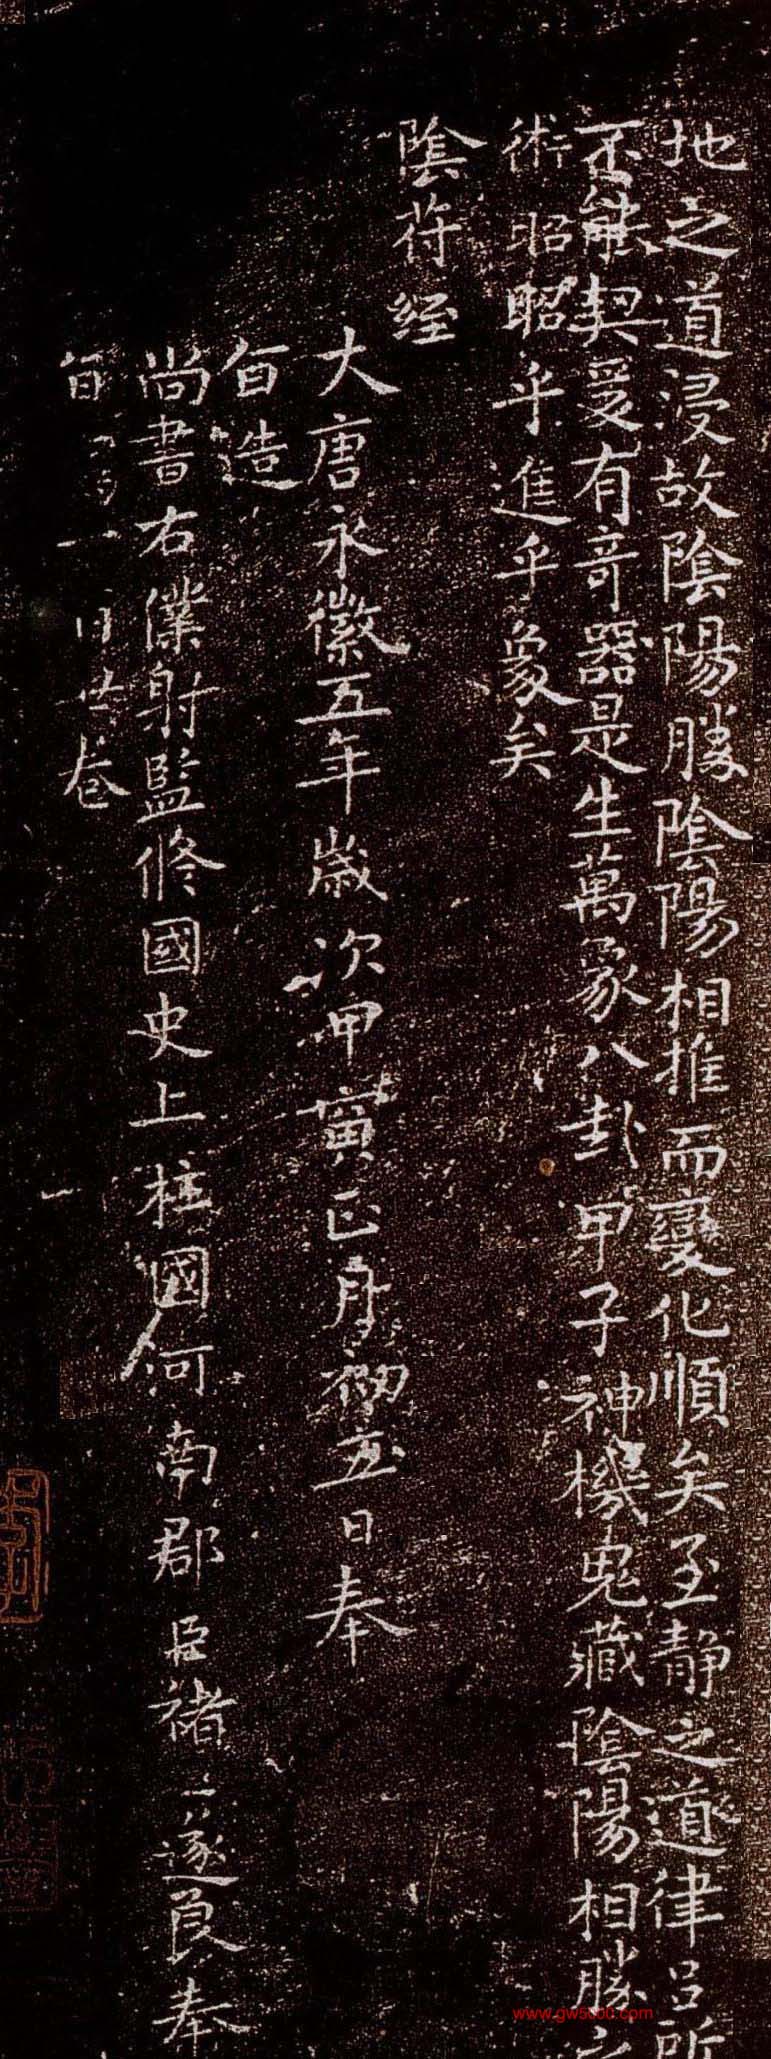 地之道浸故陰陽勝陰陽相推而變化順矣至靜之道律吕所
不能契爰有奇器是生萬象八卦甲子神機鬼藏陰陽相勝之
術昭昭乎進乎象矣
陰符經
大唐永徽五年歲次甲寅正月初五日奉
旨造
尚書右僕射監修國史上柱國河南郡臣褚遂良奉
旨 一百 卷
www.gw5000.com